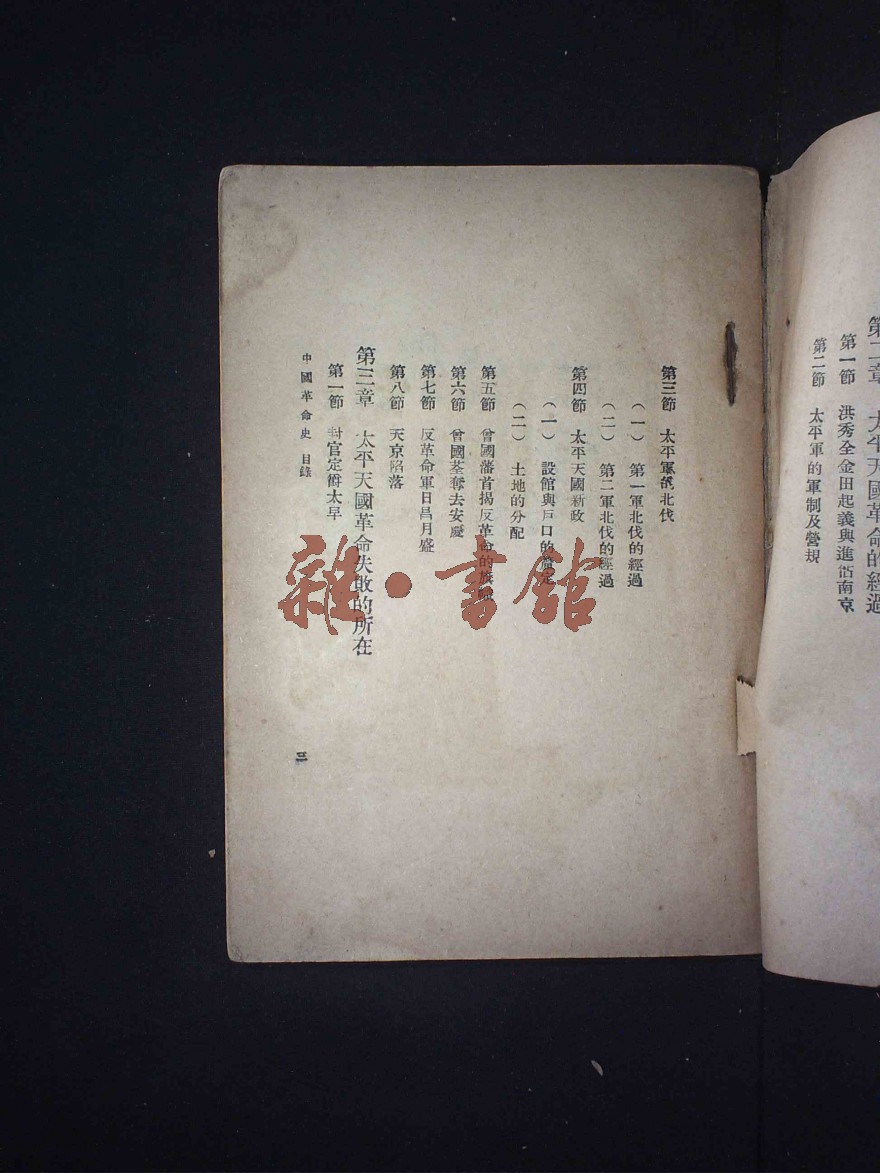 第二章 太平天國革命的經過
第一節 洪秀全金田起義與進佔南京
第二節 太平軍的軍制及營規
第三節 太平軍的北伐
（一） 第一軍北伐的經過
（二） 第二軍北伐的經過
第四節 太平天國新政
（一） 設館與戶口的
（二） 土地的分配
第五節 曾國藩首揭反革命的旗幟
第六節 曾國荃奪去安慶
第七節 反革命軍日昌月盛
第八節 天京陷落
第三章 太平天國革命失敗的所在
第一節 封官定爵太早
中國革命史 目錄
三
雜·書館